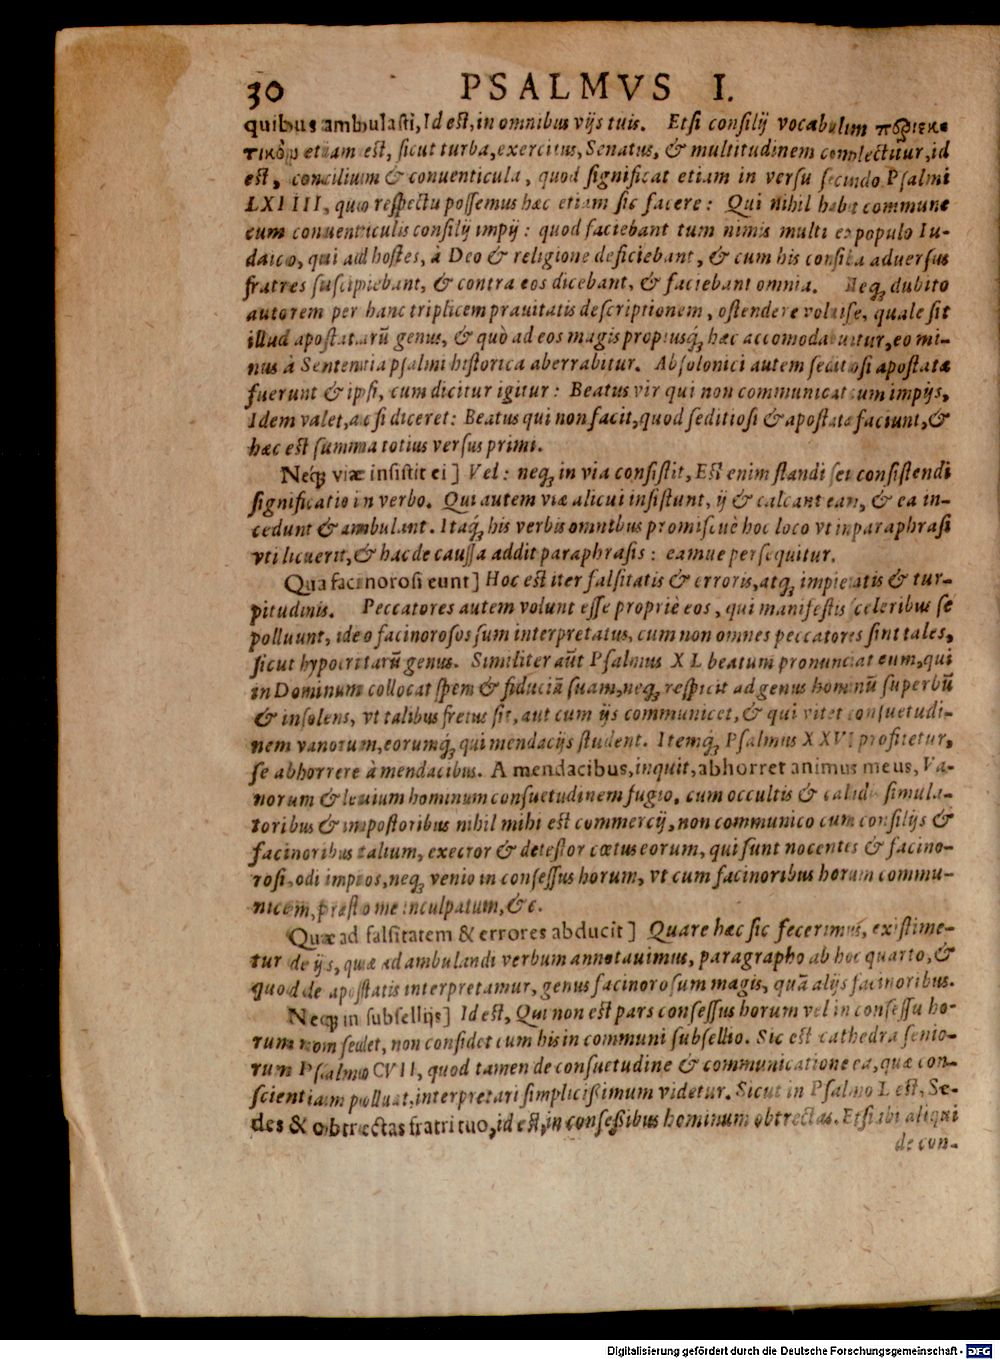 30 PSALMVS I.
quibus ambulasti, Id est, in omnibus vijs tuis. Etsi consilij vocabulum περιεκ-
τικὸν etiam est, sicut turba, exercitus, Senatus, & multitudinem complectitur, id
est, concilium & conuenticula, quod significat etiam in versu secundo Psalmi
LXIIII, quo respectu possemus hæc etiam sic facere: Qui nihil habet commune
cum conuenticulis consilij impij: quod faciebant tum nimis multi ex populo Iu-
daico, qui ad hostes, à Deo & religione deficiebant, & cum his consilia aduersus
fratres suscipiebant, & contra eos dicebant, & faciebant omnia. Neq; dubito
autorem per hanc triplicem prauitatis descriptionem, ostendere voluisse, quale sit
illud apostatarū genus, & quò ad eos magis propiusq; hæc accomodabuntur, eo mi-
nus à Sententia psalmi historica aberrabitur. Absolonici autem seditiosi apostatæ
fuerunt & ipsi, cum dicitur igitur: Beatus vir qui non communicat cum impijs,
Idem valet, ac si diceret: Beatus qui non facit, quod seditiosi & apostatæ faciunt, &
hæc est summa totius versus primi.
Neq; viæ insistit ei] Vel: neq; in via consistit, Est enim standi seu consistendi
significatio in verbo. Qui autem viæ alicui insistunt, ij & calcant eam, & ea in-
cedunt & ambulant. Itaq; his verbis omnibus promiscuè hoc loco vt in paraphrasi
vti licuerit, & hac de caussa addit paraphrasis: eamue persequitur.
Qua facinorosi eunt] Hoc est iter falsitatis & erroris, atq; impietatis & tur-
pitudinis. Peccatores autem volunt esse propriè eos, qui manifestis sceleribus se
polluunt, ideo facinorosos sum interpretatus, cum non omnes peccatores sint tales,
sicut hypocritarū genus. Similiter aūt Psalmus XL beatum pronunciat eum, qui
in Dominum collocat spem & fiduciā suam, neq; respicit ad genus hominū superbū
& insolens, vt talibus fretus sit, aut cum ijs communicet, & qui vitet consuetudi-
nem vanorum, eorumq; qui mendacijs student. Itemq; Psalmus XXVI profitetur,
se abhorrere à mendacibus. A mendacibus, inquit, abhorret animus meus, Va-
norum & leuium hominum consuetudinem fugio, cum occultis & calidis simula-
toribus & impostoribus nihil mihi est commercij, non communico cum consilijs &
facinoribus talium, execror & detestor cœtus eorum, qui sunt nocentes & facino-
rosi, odi impios, neq; venio in consessus horum, vt cum facinoribus horum commu-
nicem, præsto me inculpatum, &c.
Quæ ad falsitatem & errores abducit] Quare hæc sic fecerimus, existime-
tur de ijs, quæ ad ambulandi verbum annotauimus, paragrapho ab hoc quarto, &
quod de apostatis interpretamur, genus facinorosum magis, quā alijs facinoribus.
Neq; in subsellijs] Id est, Qui non est pars consessus horum vel in consessu ho-
rum non sedet, non considet cum his in communi subsellio. Sic est cathedra senio-
rum Psalmo CVII, quod tamen de consuetudine & communicatione ea, quæ con-
scientiam polluat, interpretari simplicissimum videtur. Sicut in Psalmo L est, Se-
des & obtrectas fratri tuo, id est, in consessibus hominum obtrectas. Etsi ibi aliqui
de con-
Digitalisierung gefördert durch die Deutsche Forschungsgemeinschaft - DFG